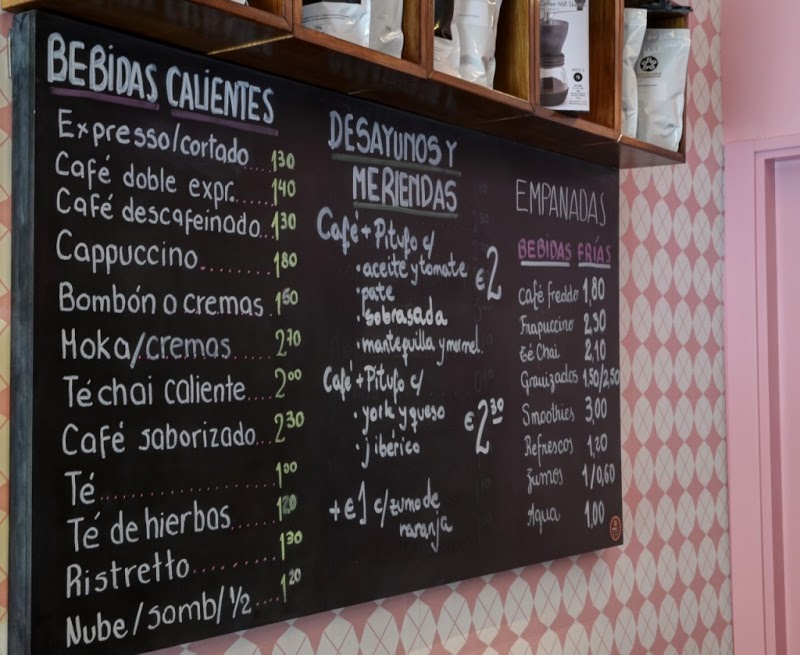 BEBIDAS CALIENTES
Expresso/cortado 130
Café doble expr. 140
Café descafeinado 130
Cappuccino 180
Bombón o cremas 150
Moka/cremas 270
Té chai caliente 200
Café saborizado 230
Té 100
Té de hierbas 120
Ristretto 130
Nube/somb/½ 120
DESAYUNOS Y
MERIENDAS
Café + Pitufo c/
· aceite y tomate
· pate
· sobrasada
· mantequilla y mermel.
€2
Café + Pitufo c/
· york y queso
· j iberico
€230
+ €1 c/zumo de
naranja
EMPANADAS
BEBIDAS FRÍAS
Café freddo 1,80
Frapuccino 2,30
Té Chai 2,10
Granizados 1,50/2,50
Smoothies 3,00
Refrescos 1,20
Zumos 1/0,60
Agua 1,00